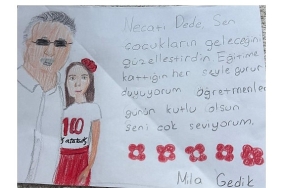 Necati Dede, Sen
çocukların geleceğini
güzelleştirdin. Eğitime
kattığın her şeyle gurur
duyuyorum öğretmenler
günün kutlu olsun
seni çok seviyorum.
100
Mila Gedik